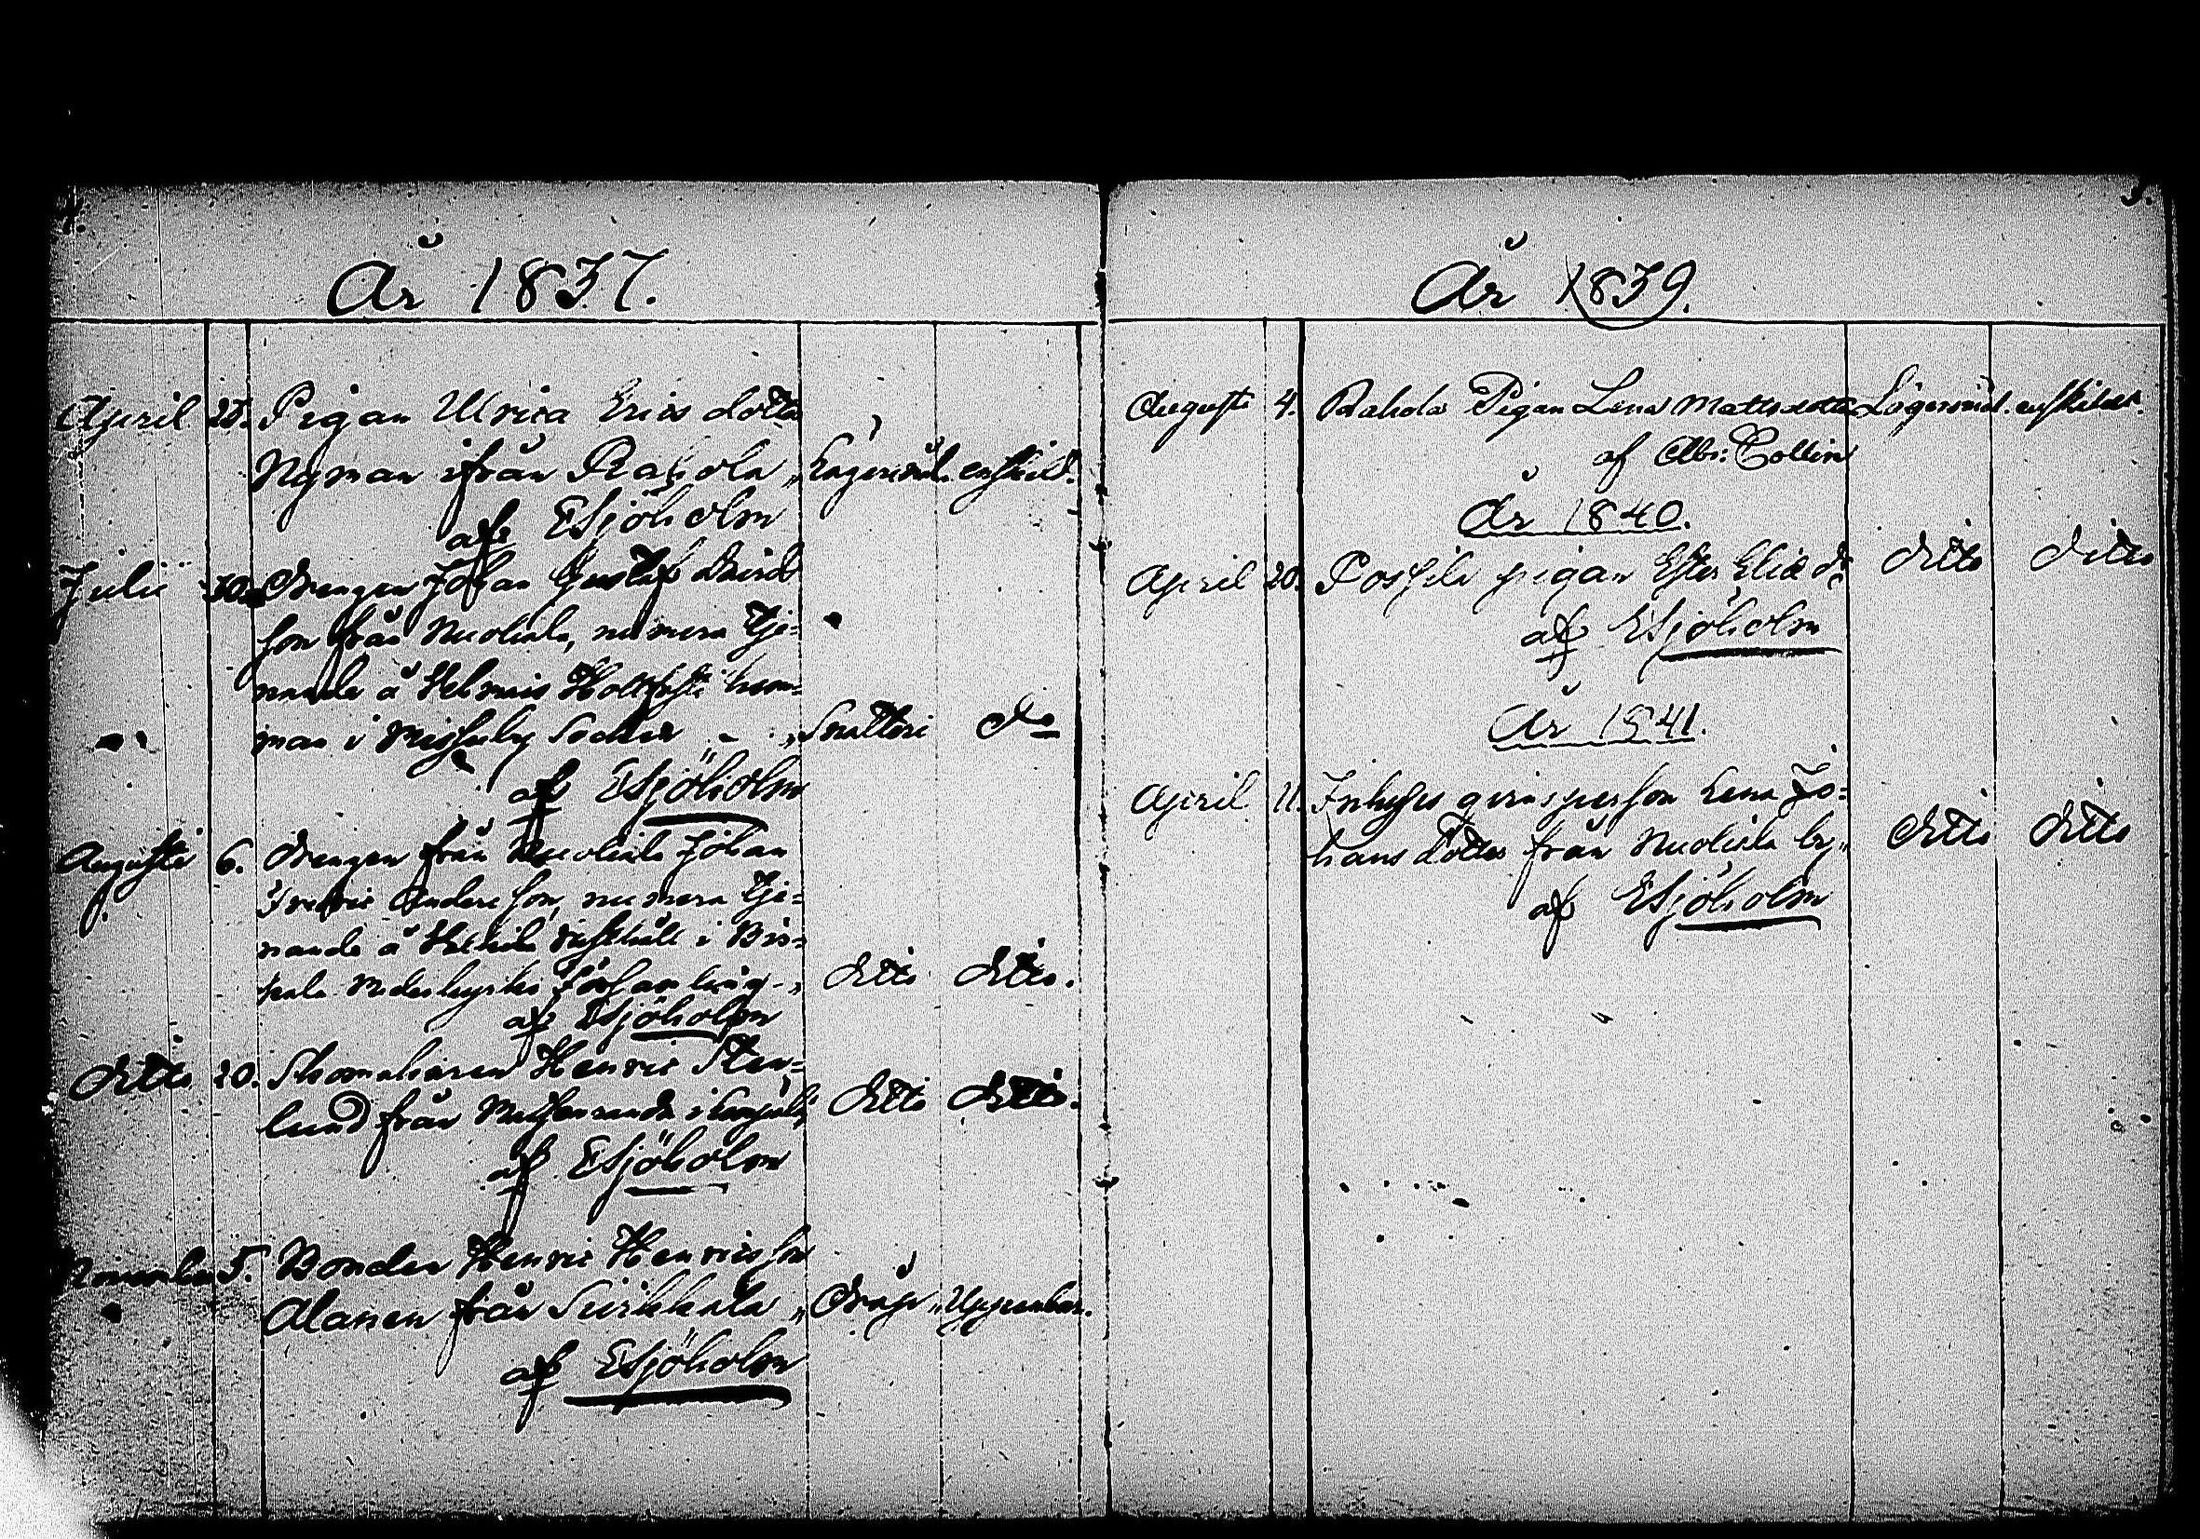 4.
År 1837.
April 25. Pigan Ulrica Erics dotter
Nyman ifrån Rahola „ Lägersmål. enskild.
af ESjöholm
Julii 30. Drengen Johan Gustaf
son från Nuoliala, numera tje=
nande å Hollo
man i Messuby Socken „ Snatteri do
af ESjöholm
Augusti 6. Drengen från Nuoliala Johan
Fredric Anders son, numera tje=
nande å i Bir=
kala Nederkyrko församling - „ ditto ditto.
af ESjöholm
ditto 20. Skomakaren Henric Sten=
lund från i ditto ditto.
af ESjöholm
November 5. Bonden Henric Henricsson
Alanen från Suikkala „ Dråp „ Uppenbar.
af ESjöholm
5.
År 1839.
Augusti 4. Rahola Pigan Lena Mattsdotter Lägersmål. enskildt.
af Abr: Collin
År 1840.
April 20. Pospila pigan Ester Eliæ dr ditto ditto
af ESjöholm
År 1841.
April 11. Inhyses qvinsperson Lena Jo=
hans dotter från Nuoliala by „ ditto ditto
af ESjöholm